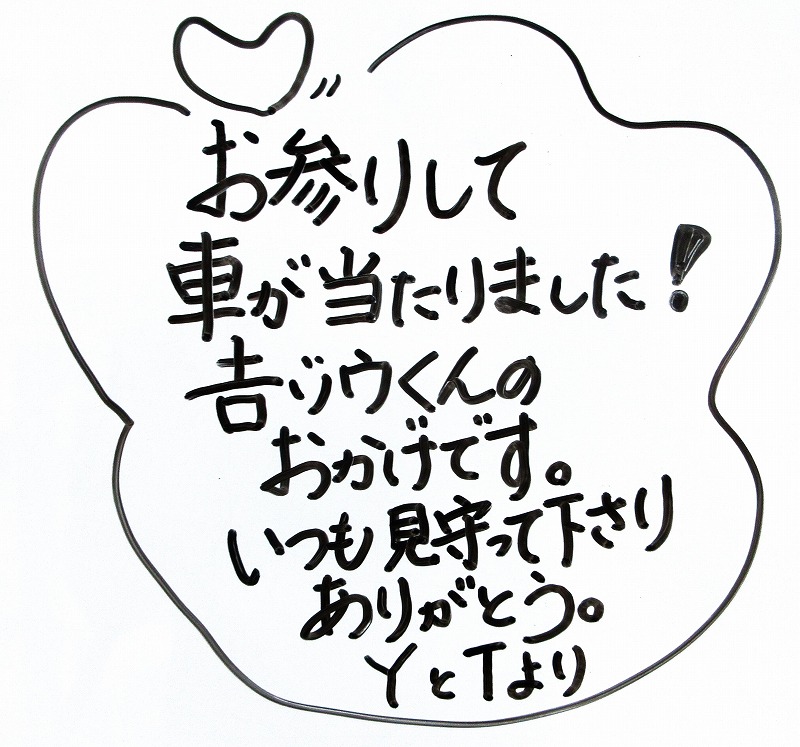 お参りして
車が当たりました!
吉ヅウくんの
おかげです。
いつも見守って下さり
ありがとう。
YとTより